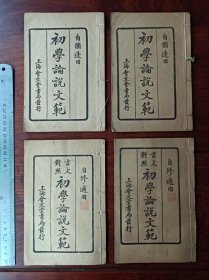 自脩適用
初學論說文範
上海會文堂書局發行
自脩適用
初學論說文範
上海會文堂書局發行
自修適用
言文對照
初學論說文範
上海會文堂書局發行
自修適用
言文對照
初學論說文範
上海會文堂書局發行